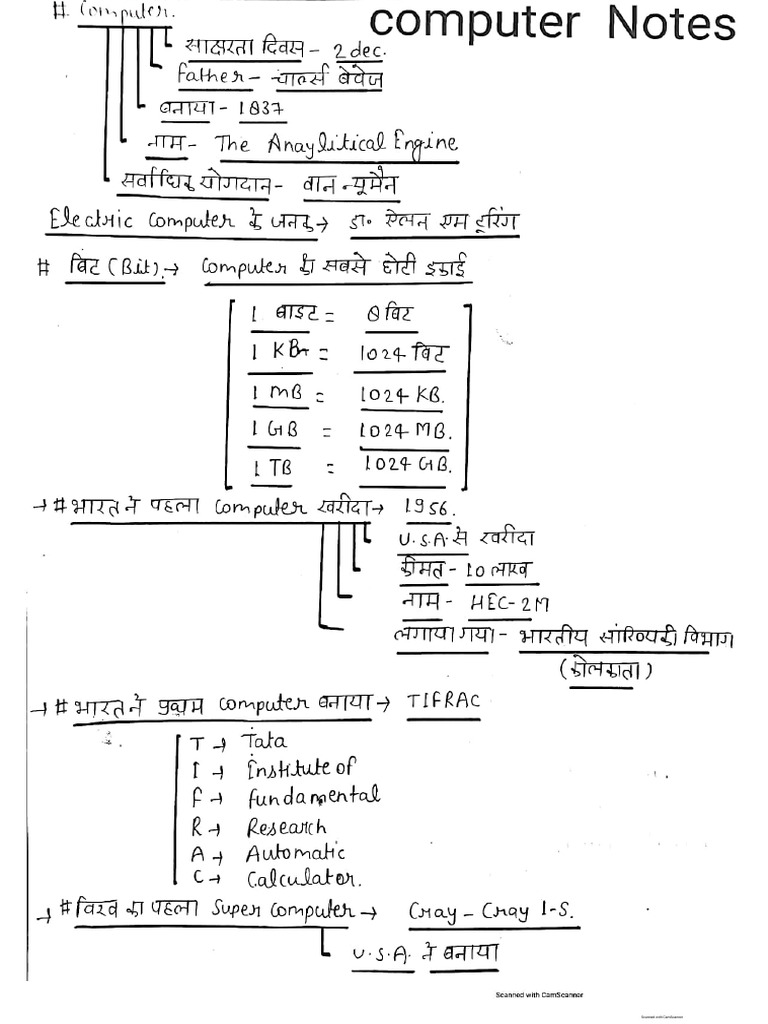 # Computer.
computer Notes
साक्षरता दिवस - 2 dec.
Father - चार्ल्स बेवेज
बनाया - 1837
नाम - The Anaylitical Engine
सर्वाधिक योगदान - वान न्यूमैन
Electric Computer के जनक → डा० ऐलन एम टूरिंग
# बिट (Bit) → Computer की सबसे छोटी इकाई
1 बाइट = 8 बिट
1 KB = 1024 बिट
1 MB = 1024 KB.
1 GB = 1024 MB.
1 TB = 1024 GB.
→ # भारत ने पहला Computer खरीदा → 1956.
U.S.A. से खरीदा
कीमत - 10 लाख
नाम - HEC-2M
लगाया गया - भारतीय सांख्यिकी विभाग
(कोलकाता)
→ # भारत ने प्रथम Computer बनाया → TIFRAC
T → Tata
I → Institute of
F → fundamental
R → Research
A → Automatic
C → Calculator.
→ # विश्व का पहला Super Computer → Cray - Cray 1-S.
U.S.A. ने बनाया
Scanned with CamScanner
Scanned with CamScanner